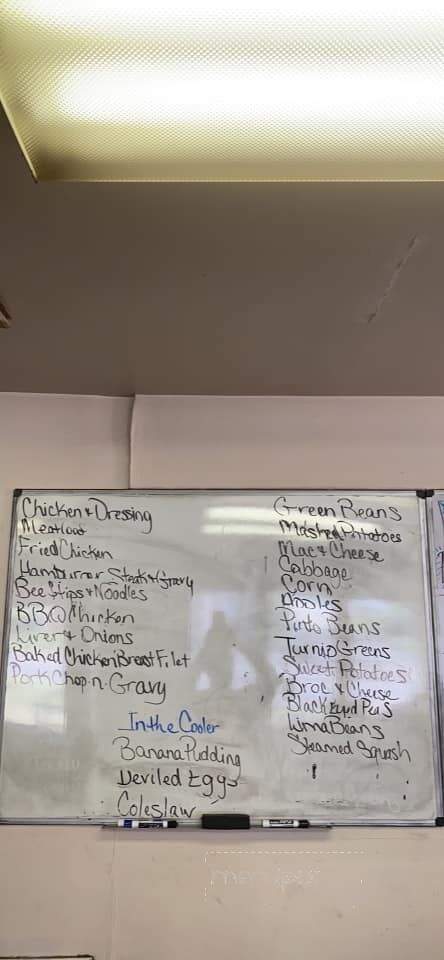 Chicken + Dressing
Meatloaf
Fried Chicken
Hamburger Steak + Gravy
Beef Tips + Noodles
BBQ Chicken
Liver + Onions
Baked Chicken Breast Filet
Pork Chop -n- Gravy
In the Cooler
Banana Pudding
Deviled Eggs
Coleslaw
Green Beans
Mashed Potatoes
Mac + Cheese
Cabbage
Corn
Apples
Pinto Beans
Turnip Greens
Sweet Potatoes
Broc + Cheese
Black Eyed Peas
Lima Beans
Steamed Squash